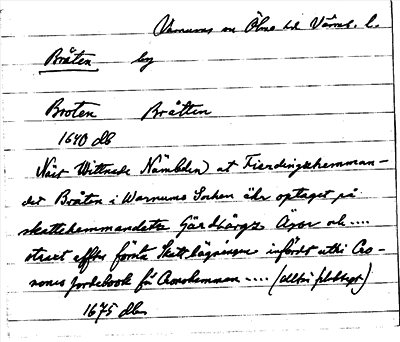 Varnums sn Ölme hd Värml. l.
Bråten by
Broten Bråtten
1640 db
Näst Wittnade Nämbden) at Fierdingzhemman-
det Bråten i Warnums Sochen ähr optaget på
skattehemmandetz Gärdbärgz Ägor och ....
straxt effter första Skattlägningen infördt uthi Cro-
nones Jordebook för Cronohemman .... (alltså flobbyet)
1675 db